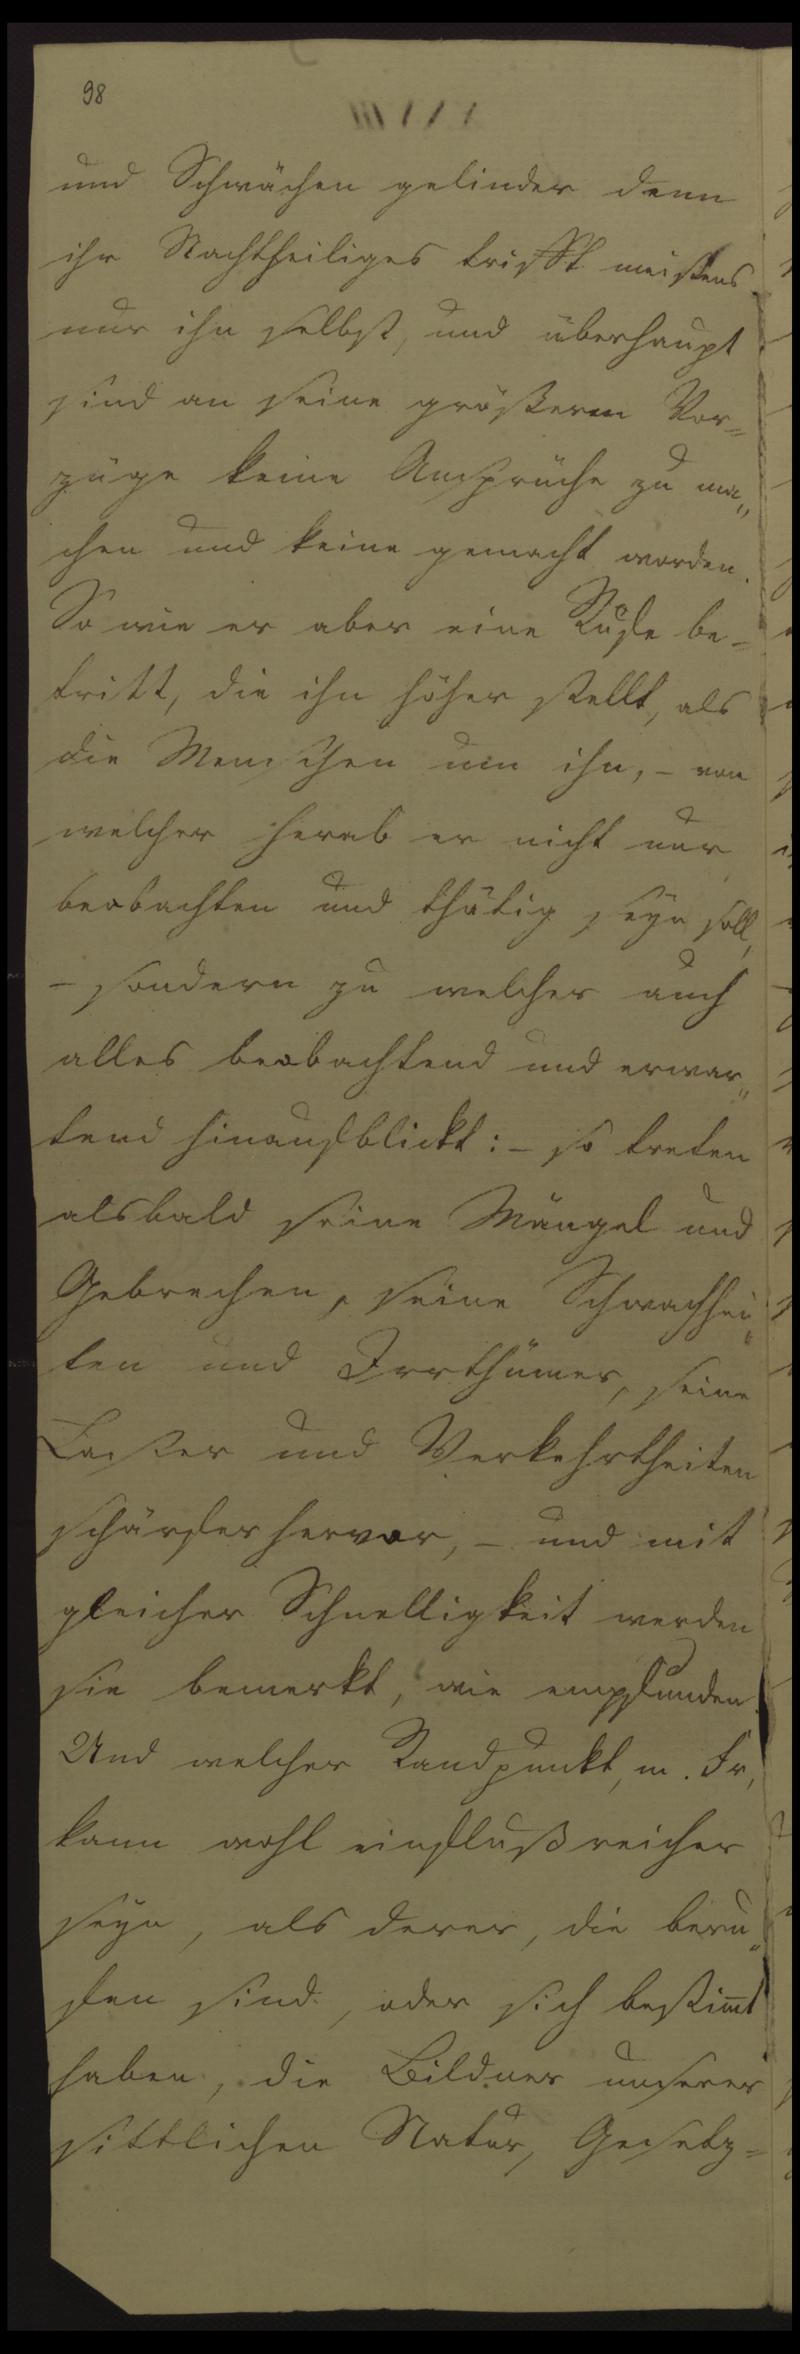 98
und Schwächen gelinder denn
ihr Nachtheiliges trifft meistens
nur ihn selbst, und überhaupt
sind an seine größeren Vor=
züge keine Ansprüche zu ma„
chen und keine gemacht worden.
So wie er aber eine Stufe be=
tritt, die ihn höher stellt, als
die Menschen um ihn, – von
welcher herab er nicht nur
beobachten und thätig seyn soll,
– sondern zu welcher auch
alles beobachtend und erwar„
tend hinaufblickt: – so treten
alsbald seine Mängel und
Gebrechen, seine Schwachhei„
ten und Irrthümer, seine
Laster und Verkehrtheiten
schärfer hervor, – und mit
gleicher Schnelligkeit werden
sie bemerkt, wie empfunden.
Und welcher Standpunkt, m. Fr,
kann wohl einflußreicher
seyn, als derer, die beru„
fen sind, oder sich bestimmt
haben, die Bildner unserer
sittlichen Natur, Gesetz=